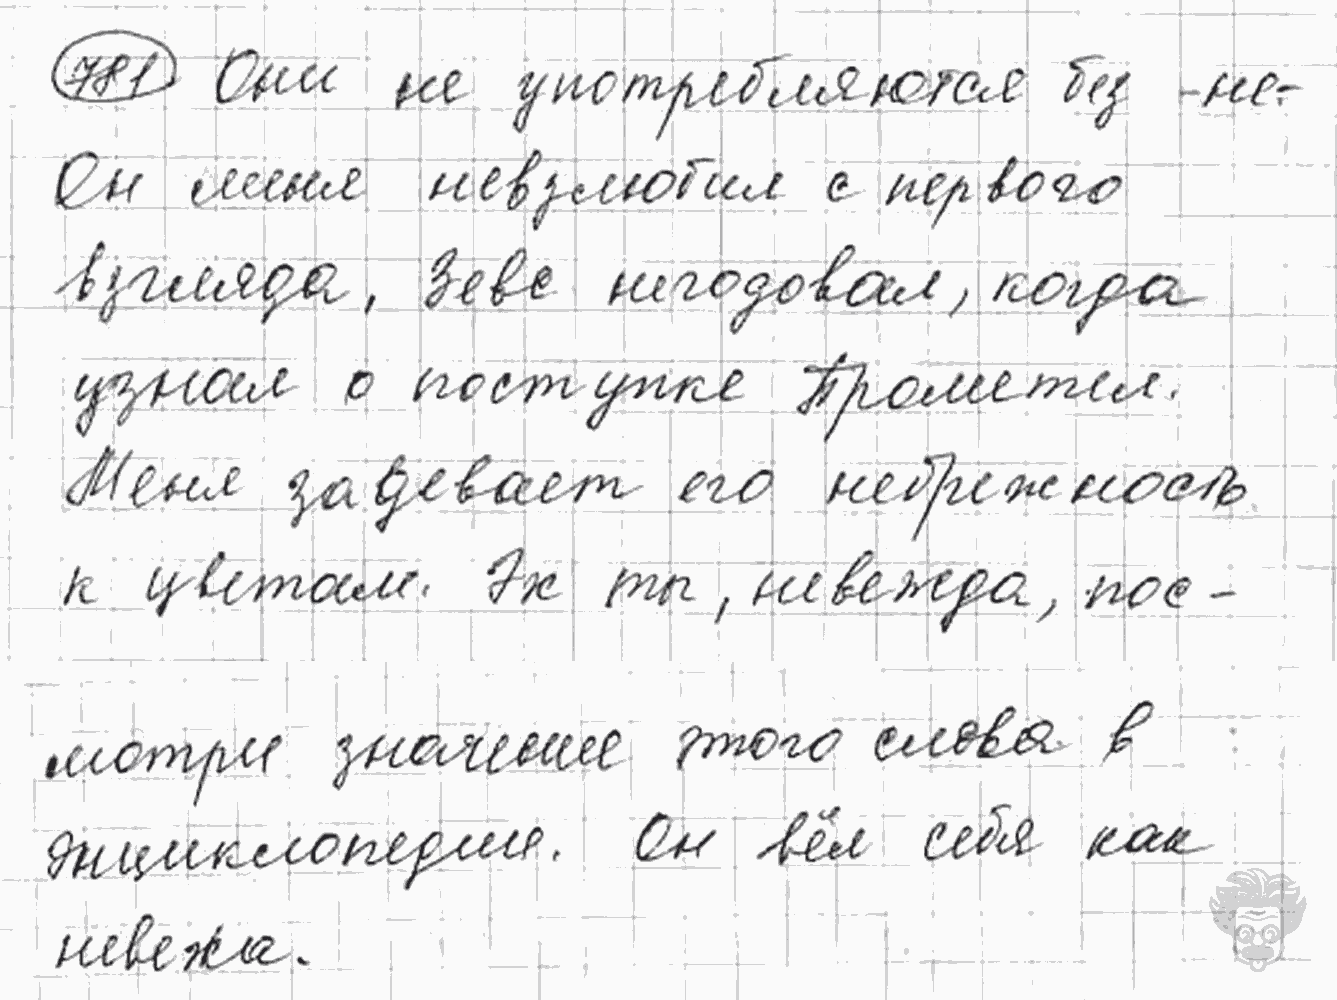 781 Они не употребляются без -не-.
Он меня невзлюбил с первого
взгляда, Зевс негодовал, когда
узнал о поступке Прометея.
Меня задевает его небрежность
к цветам. Эх ты, невежда, пос-
мотри значение этого слова в
энциклопедии. Он вёл себя как
невежа.